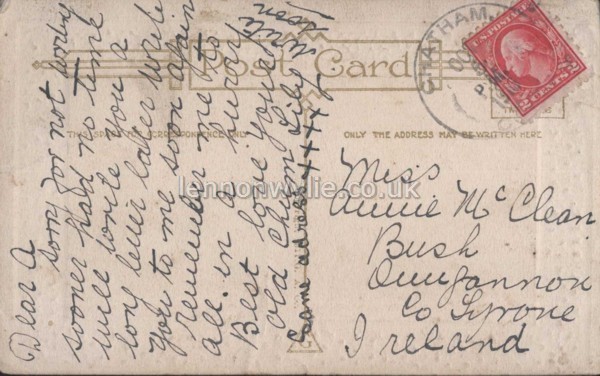 Post Card
THIS SPACE FOR CORRESPONDENCE ONLY
ONLY THE ADDRESS MAY BE WRITTEN HERE
CHATHAM
P.M.
U.S. POSTAGE
2 CENTS 2
Dear A
sorry for not writing
sooner had no time
will write you a
long letter later write
You to me soon again
remember me to
all in a hurry
Best love your
old chum Lily
write soon
same adress ++++
Miss
Annie McClean
Bush
Dungannon
Co Tyrone
Ireland
lennonwylie.co.uk